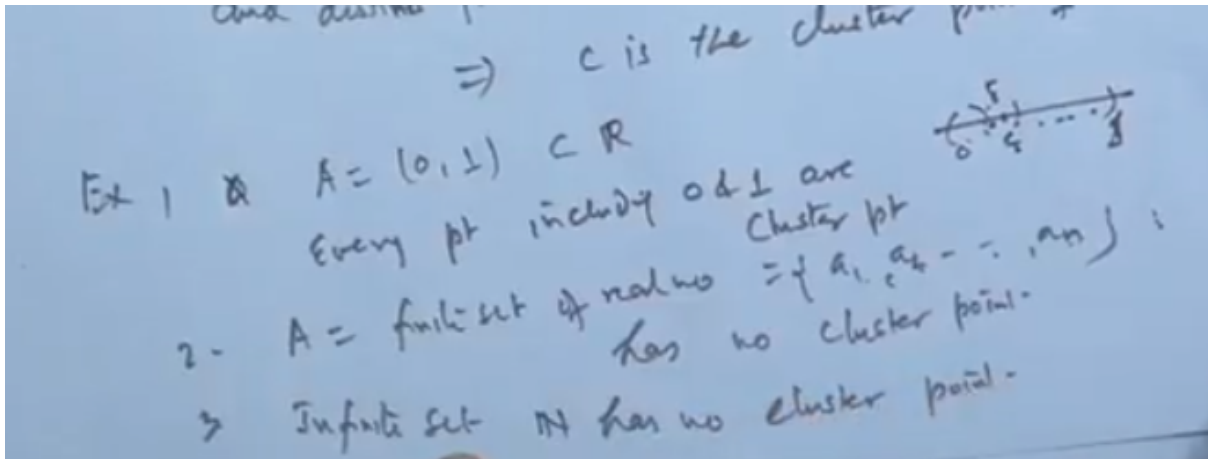 and distinct
⇒ C is the cluster point of
Ex 1 A = (0,1) ⊂ ℝ
Every pt includy 0 & 1 are
Cluster pt
0 1
2- A = finite set of real no = { a1, a2, - - , an } ;
has no cluster point-
3 Infinite set ℕ has no cluster point-